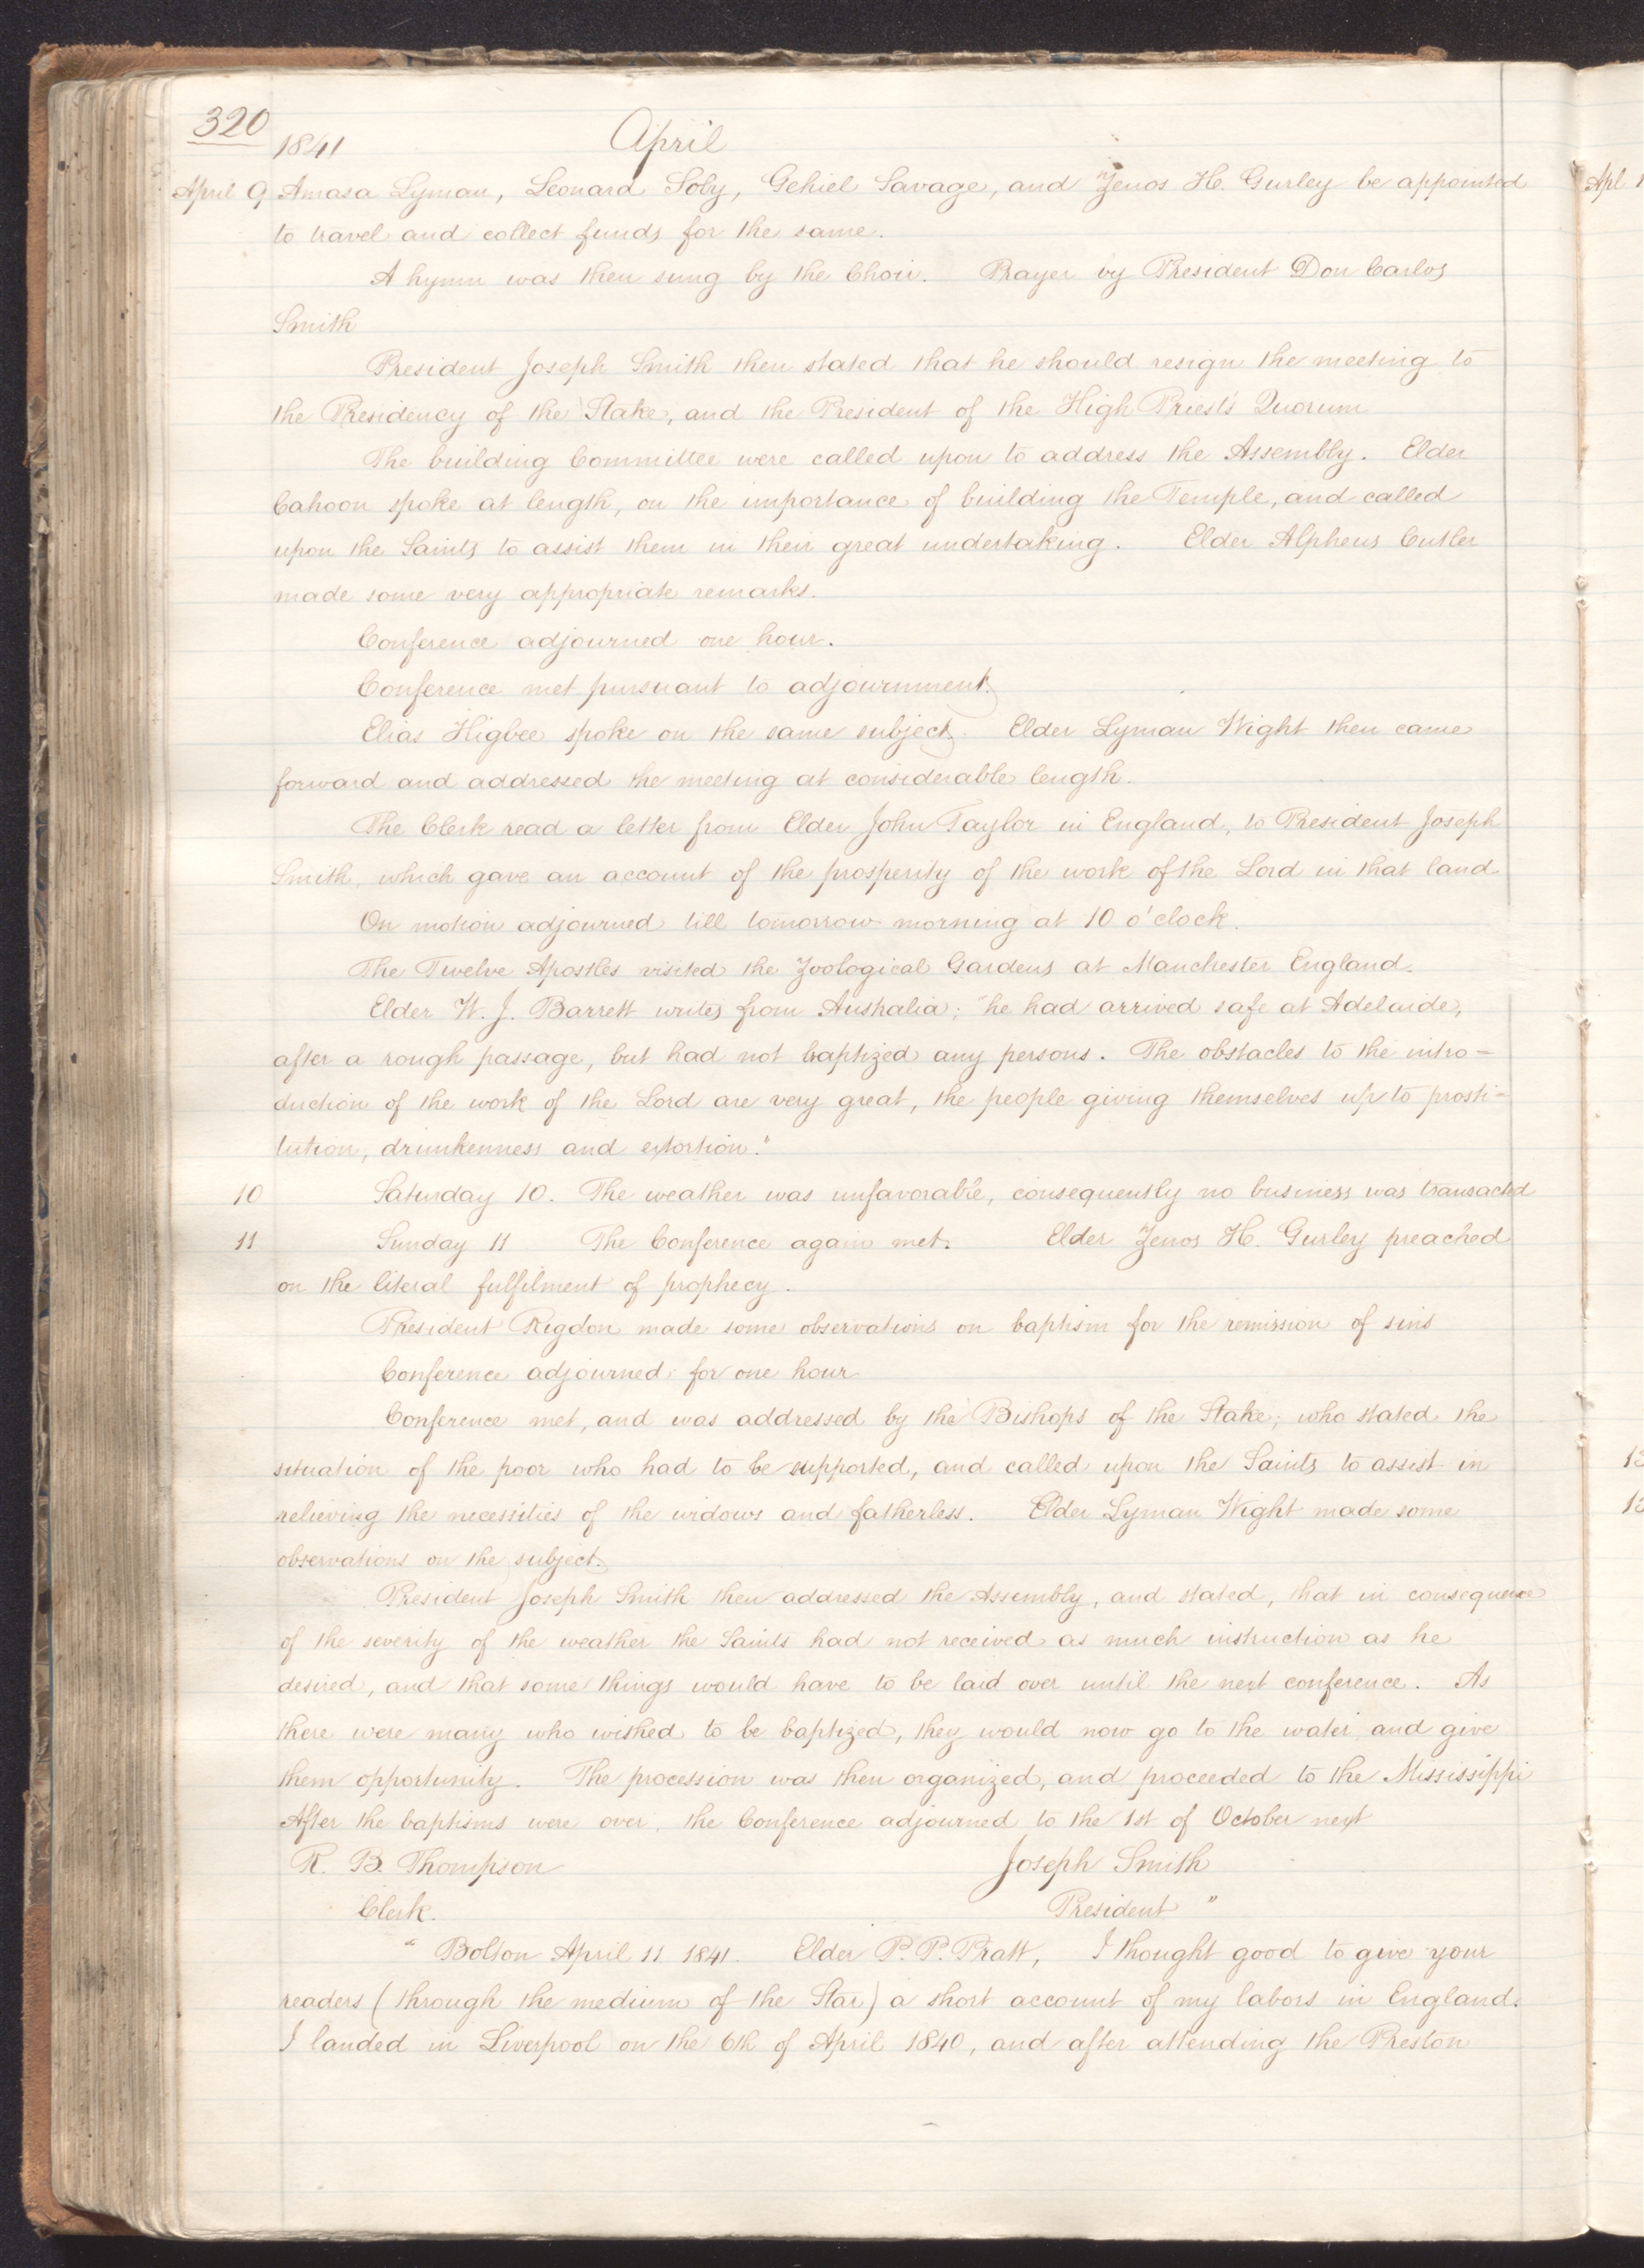 320
1841 April
April 9 Amasa Lyman, Leonard Soby, Gehiel Savage, and Zenos H. Gurley be appointed
to travel and collect funds for the same.
A hymn was then sung by the Choir. Prayer by President Don Carlos
Smith
President Joseph Smith then stated that he should resign the meeting to
the Presidency of the Stake, and the President of the High Priest's Quorum
The building Committee were called upon to address the Assembly. Elder
Cahoon spoke at length, on the importance of building the Temple, and called
upon the Saints to assist them in their great undertaking. Elder Alpheus Cutler
made some very appropriate remarks.
Conference adjourned one hour.
Conference met pursuant to adjournment.
Elias Higbee spoke on the same subject. Elder Lyman Wight then came
forward and addressed the meeting at considerable length.
The Clerk read a letter from Elder John Taylor in England, to President Joseph
Smith, which gave an account of the prosperity of the work of the Lord in that land.
On motion adjourned till tomorrow morning at 10 o'clock.
The Twelve Apostles visited the Zoological Gardens at Manchester England.
Elder W. J. Barrett writes from Australia; "he had arrived safe at Adelaide,
after a rough passage, but had not baptized any persons. The obstacles to the intro-
duction of the work of the Lord are very great, the people giving themselves up to prosti-
tution, drunkenness and extortion."
10 Saturday 10. The weather was unfavorable, consequently no business was transacted
11 Sunday 11 The Conference again met. Elder Zenos H. Gurley preached
on the literal fulfilment of prophecy.
President Rigdon made some observations on baptism for the remission of sins
Conference adjourned for one hour
Conference met, and was addressed by the Bishops of the Stake; who stated the
situation of the poor who had to be supported, and called upon the Saints to assist in
relieving the necessities of the widows and fatherless. Elder Lyman Wight made some
observations on the subject.
President Joseph Smith then addressed the Assembly, and stated, that in consequence
of the severity of the weather the Saints had not received as much instruction as he
desired, and that some things would have to be laid over until the next conference. As
there were many who wished to be baptized, they would now go to the water and give
them opportunity. The procession was then organized, and proceeded to the Mississippi
After the baptisms were over, the Conference adjourned to the 1st of October next
R. B. Thompson Joseph Smith
Clerk. President "
" Bolton April 11. 1841. Elder P. P. Pratt, I thought good to give your
readers (through the medium of the Star) a short account of my labors in England.
I landed in Liverpool on the 6th of April 1840, and after attending the Preston
Apl